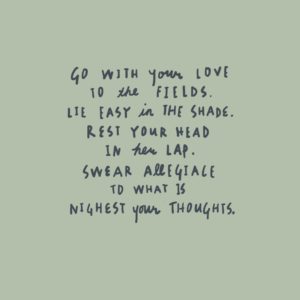 GO WITH your LOVE
TO the FIELDS.
LIE EASY in THE SHADE.
REST YOUR HEAD
IN her LAP.
SWEAR AllEGIACE
TO WHAT IS
NIGHEST your THOUGHTS.